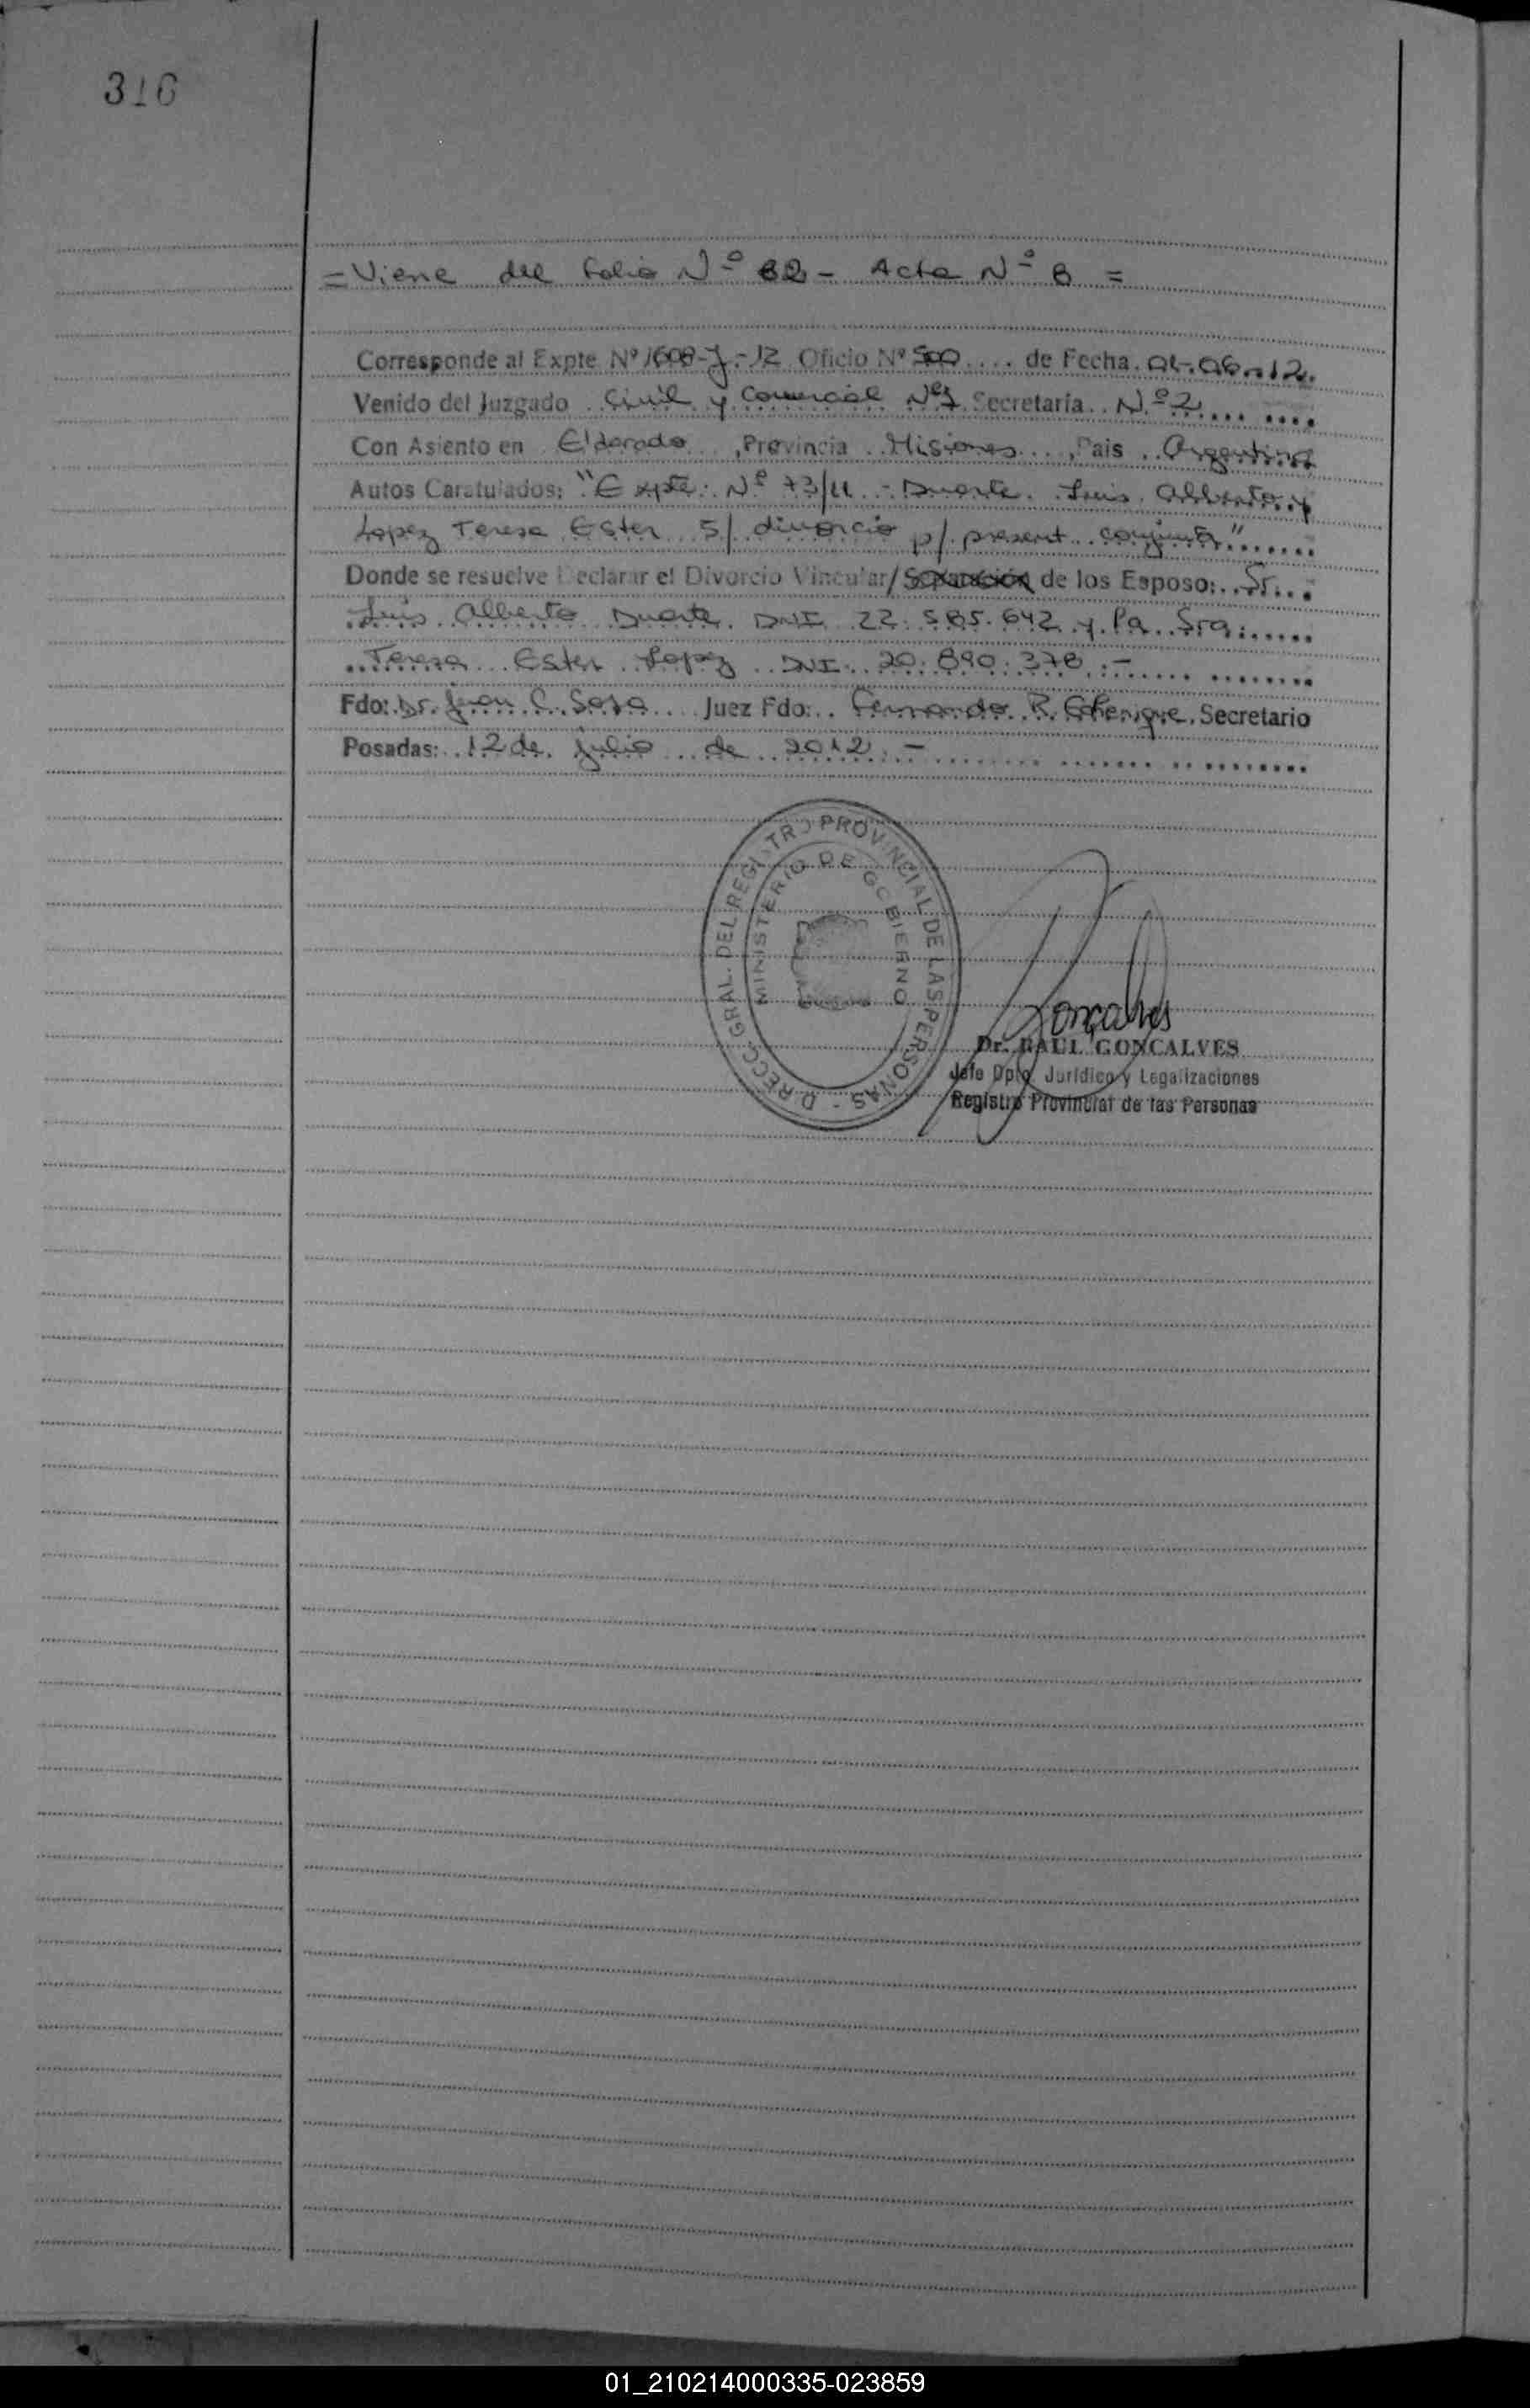 316
= Viene del folio Nº 82 - Acta Nº 8 =
Corresponde al Expte Nº 1608-J-12 Oficio Nº 500 .... de Fecha. 01-06-12.
Venido del Juzgado Civil y Comercial Nº1 Secretaría.. Nº 2.... ....
Con Asiento en Eldorado ..., Provincia .. Misiones ...., Pais .. Argentina
Autos Caratulados: "Expte. Nº 73/11 - Duarte. Luis. Alberto y
Lopez Teresa Ester S/ divorcio p/ present. conjunta".......
Donde se resuelve Declarar el Divorcio Vincular/Separación de los Esposo:..Sr...
Luis Alberto Duarte. DNI 22.585.642 y la Sra:......
..Teresa Ester Lopez DNI: 20.890.378.-
Fdo: Dr. Juan C. Sosa.... Juez Fdo:.. Fernando R. Echenique. Secretario
Posadas: 12 de julio de 2012.-
DIRECC. GRAL. DEL REGISTRO PROVINCIAL DE LAS PERSONAS -
MINISTERIO DE GOBIERNO
Goncalves
Dr. RAUL GONCALVES
Jefe Dpto Jurídico y Legalizaciones
Registro Provincial de las Personas
01_210214000335-023859